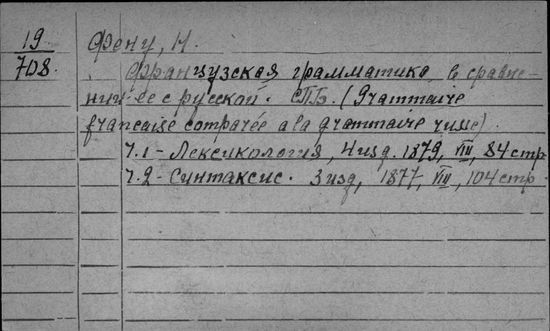 19 Фену, Н.
708. Французская грамматика, в сравне-
нии ее с русской. СПБ. (Grammaire
francaise comparée a la grammaire russe).
Ч.1 - Лексикология, 4 изд. 1879, VIII, 84 стр.
Ч.2 - Синтаксис. 3 изд, 1877, VIII, 104 стр.